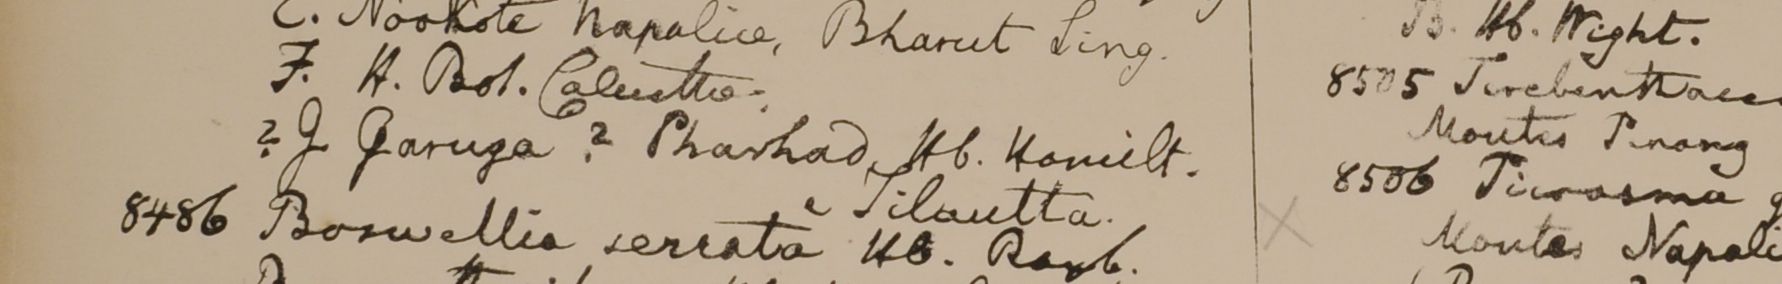 C. Nookote Napaliæ, Bharut Sing.
F. H. Bot. Calcutta.
? G Garuga ? Pharhad, Hb. Hamilt.
e Tilcutta.
8486 Boswellia serrata Hb. Roxb.
B. Hb. Wight.
8505 Terebenthacea
Montes Pinang
8506 Picrasma
Montes Napali